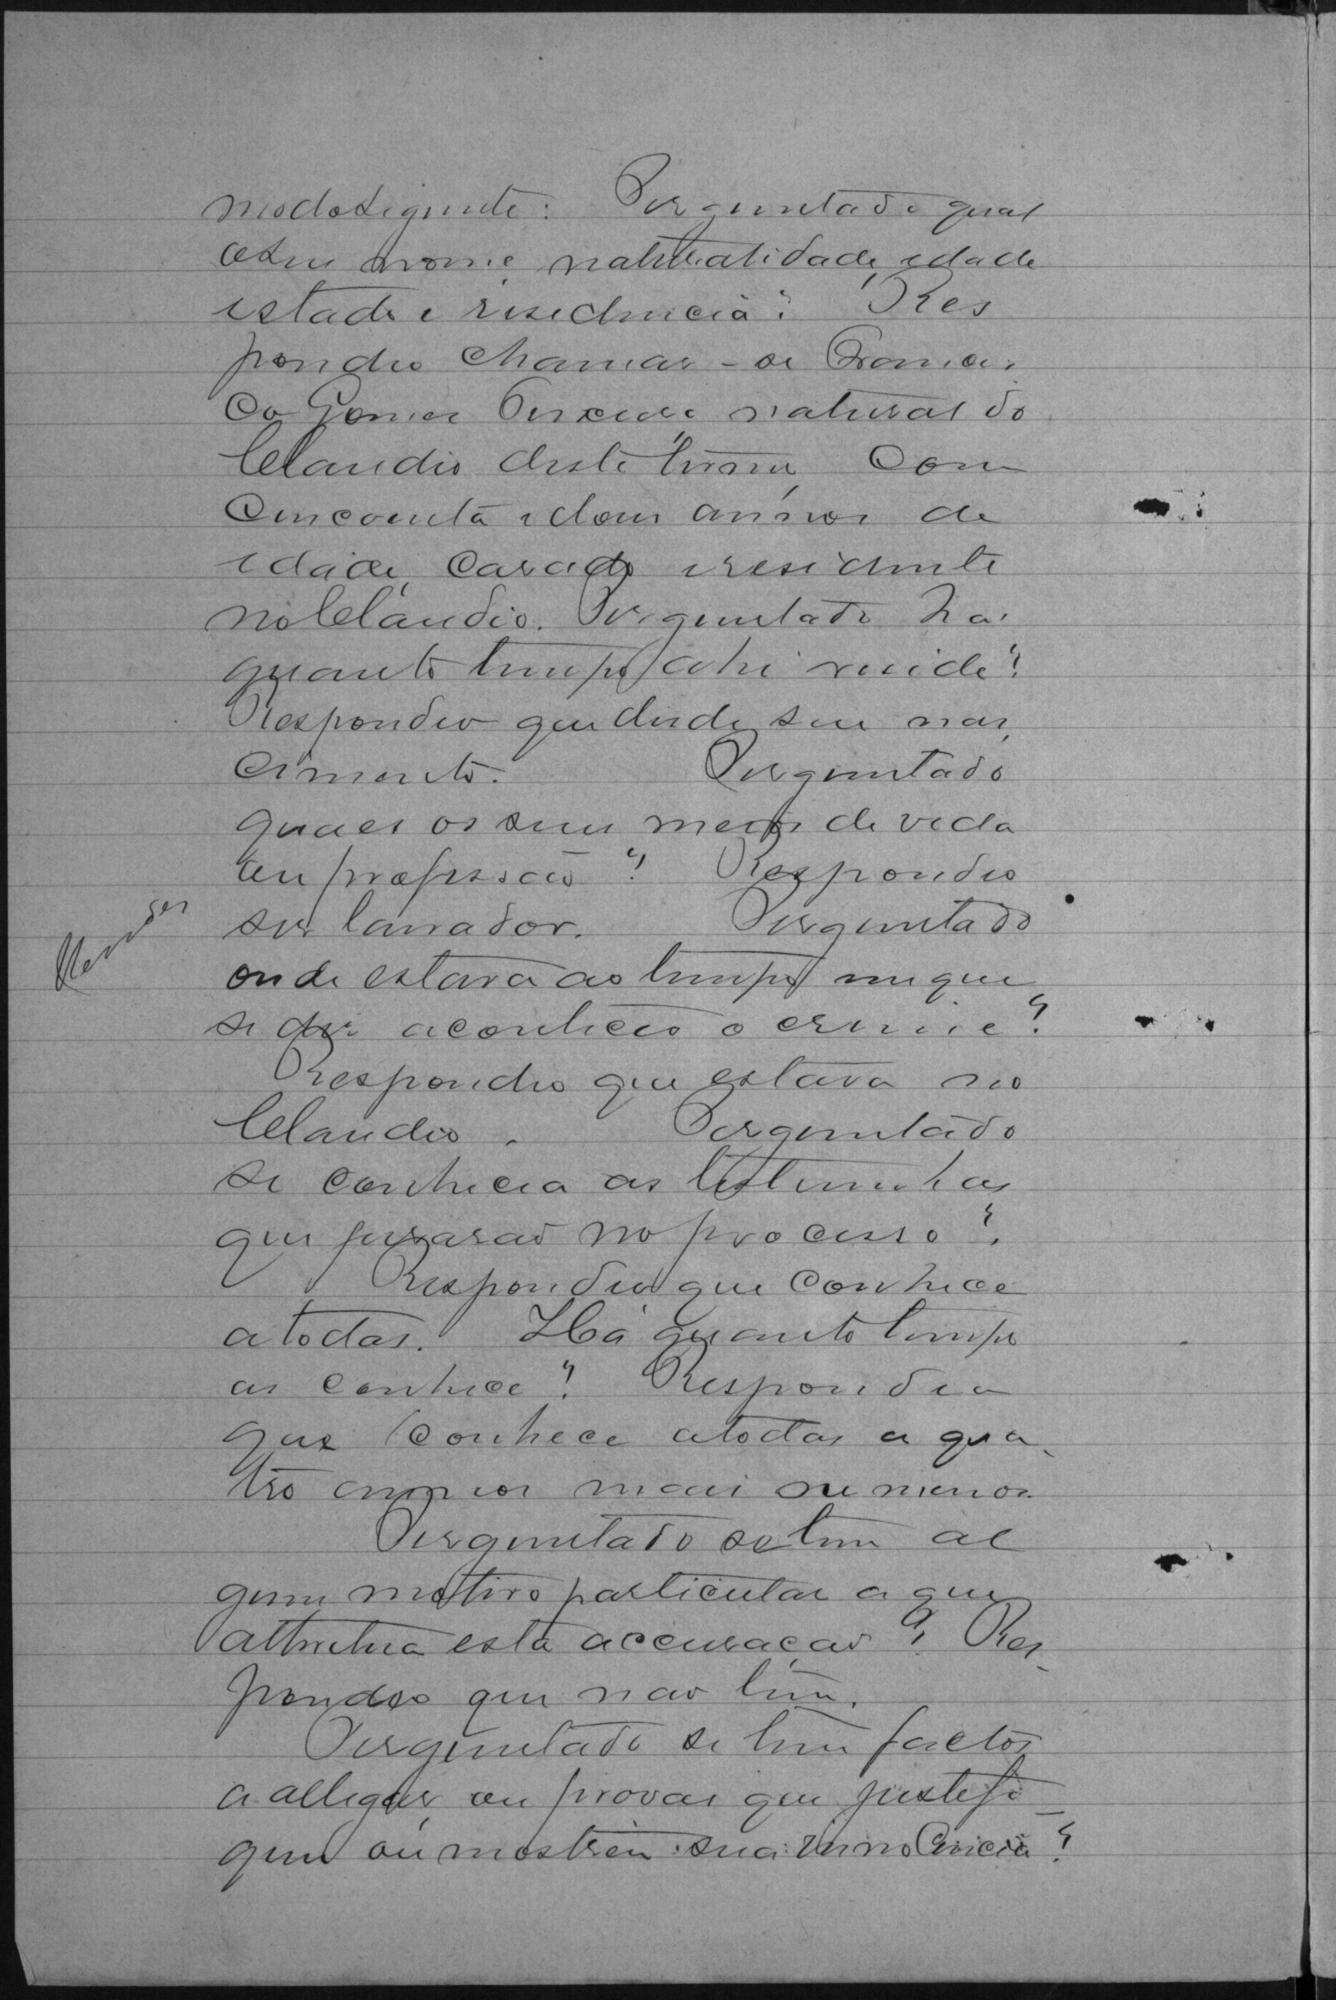 modo seguinte: Perguntado qual
o seu nome, naturalidade, edade
estado e residencia? Res
pondeo chamar-se Francis
co Gomes Pereira, natural do
Claudio deste termo, com
cincoenta e dous annos de
edade, casado e residente
no Claudio. Perguntado ha
quanto tempo ahi reside?
Respondeo que desde seu nas
cimento. Perguntado
quaes os seus meios de vida
ou profissão? Respondeo
ser lavrador. Perguntado
onde estava ao tempo em que
se diz aconteceo o crime?
Respondeo que estava no
Claudio. Perguntado
se conhecia as testemunhas
que jurarão no processo?
Respondeo que conhece
a todas. Há quanto tempo
as conhece? Respondeu
que conhece a todas a qua
tro annos mais ou menos.
Perguntado se tem al
gum motivo particular a que
attribua esta accusação? Res
pondeo que não tem.
Perguntado se tem factos
a allegar ou provas que justefi
quem ou mostrem sua innocencia?